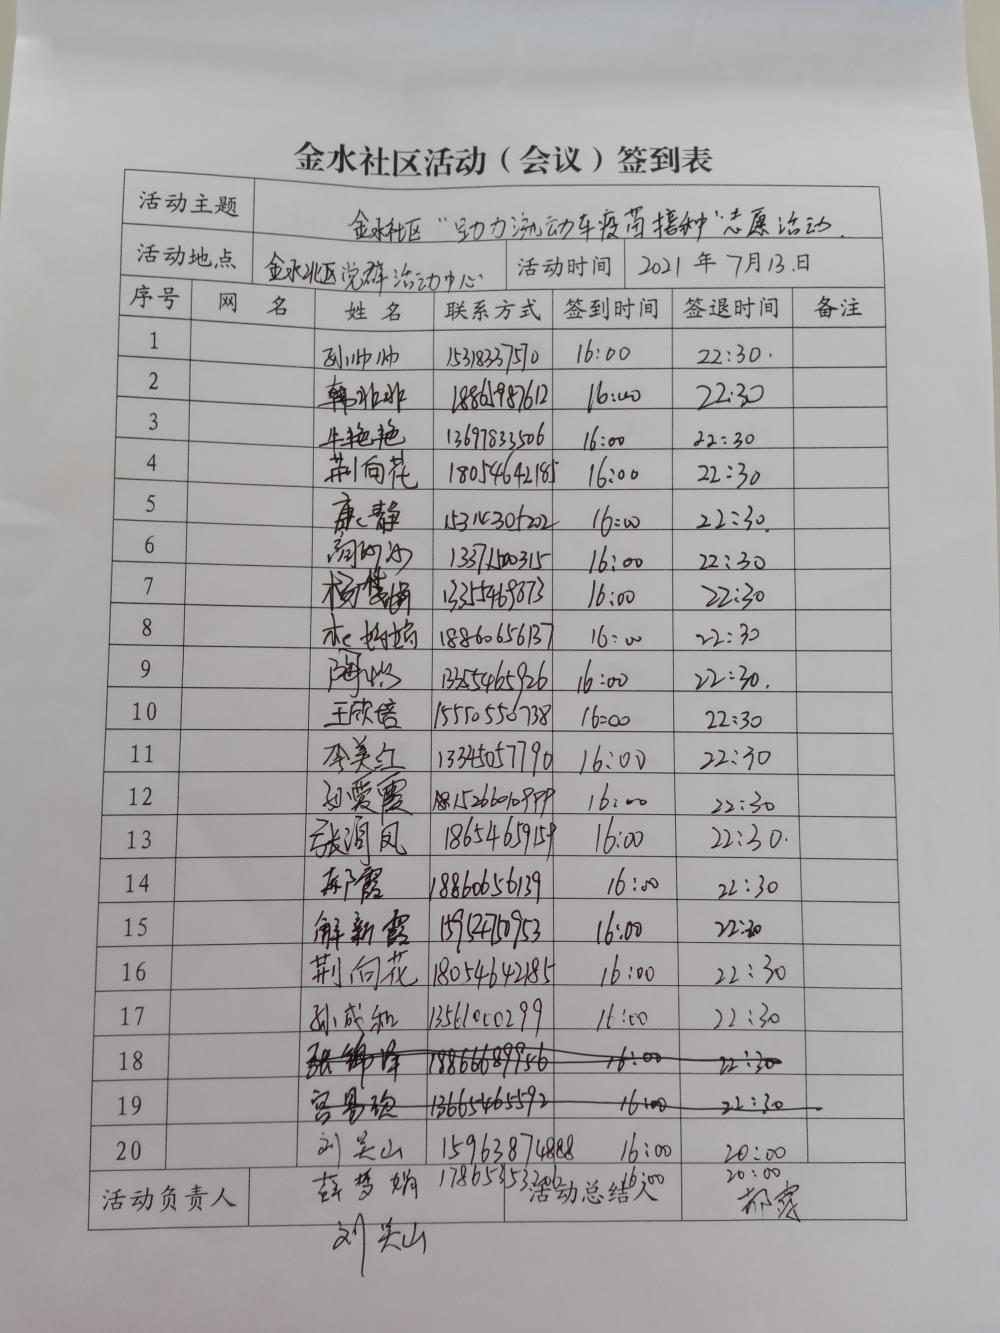 金水社区活动（会议）签到表
活动主题 金水社区“助力流动车疫苗接种”志愿活动.
活动地点 金水社区党群活动中心 活动时间 2021年7月13日
序号 网 名 姓 名 联系方式 签到时间 签退时间 备注
1 孙帅帅 15318337570 16:00 22:30.
2 韩非非 18865987612 16:00 22:30
3 牛艳艳 13697833506 16:00 22:30
4 荆向花 18054642185 16:00 22:30
5 康静 16:00 22:30.
6 16:00 22:30
7 杨 13355469873 16:00 22:30
8 18860656137 16:00 22:30
9 陶 13355465926 16:00 22:30.
10 王欣倍 15550550738 16:00 22:30
11 李美红 13345057790 16:00 22:30
12 孙爱霞 16:00 22:30
13 张润凤 18654659159 16:00 22:30.
14 郝霞 18860656139 16:00 22:30
15 解新霞 15954750953 16:00 22:30
16 荆向花 18054642185 16:00 22:30
17 孙成和 13561000299 16:00 22:30
18 18866689956 16:00 22:30
19 13665465592 16:00 22:30
20 刘关山 15963874888 16:00 20:00
薛梦娟 16:00 20:00
活动负责人 活动总结人 郝霞
刘关山